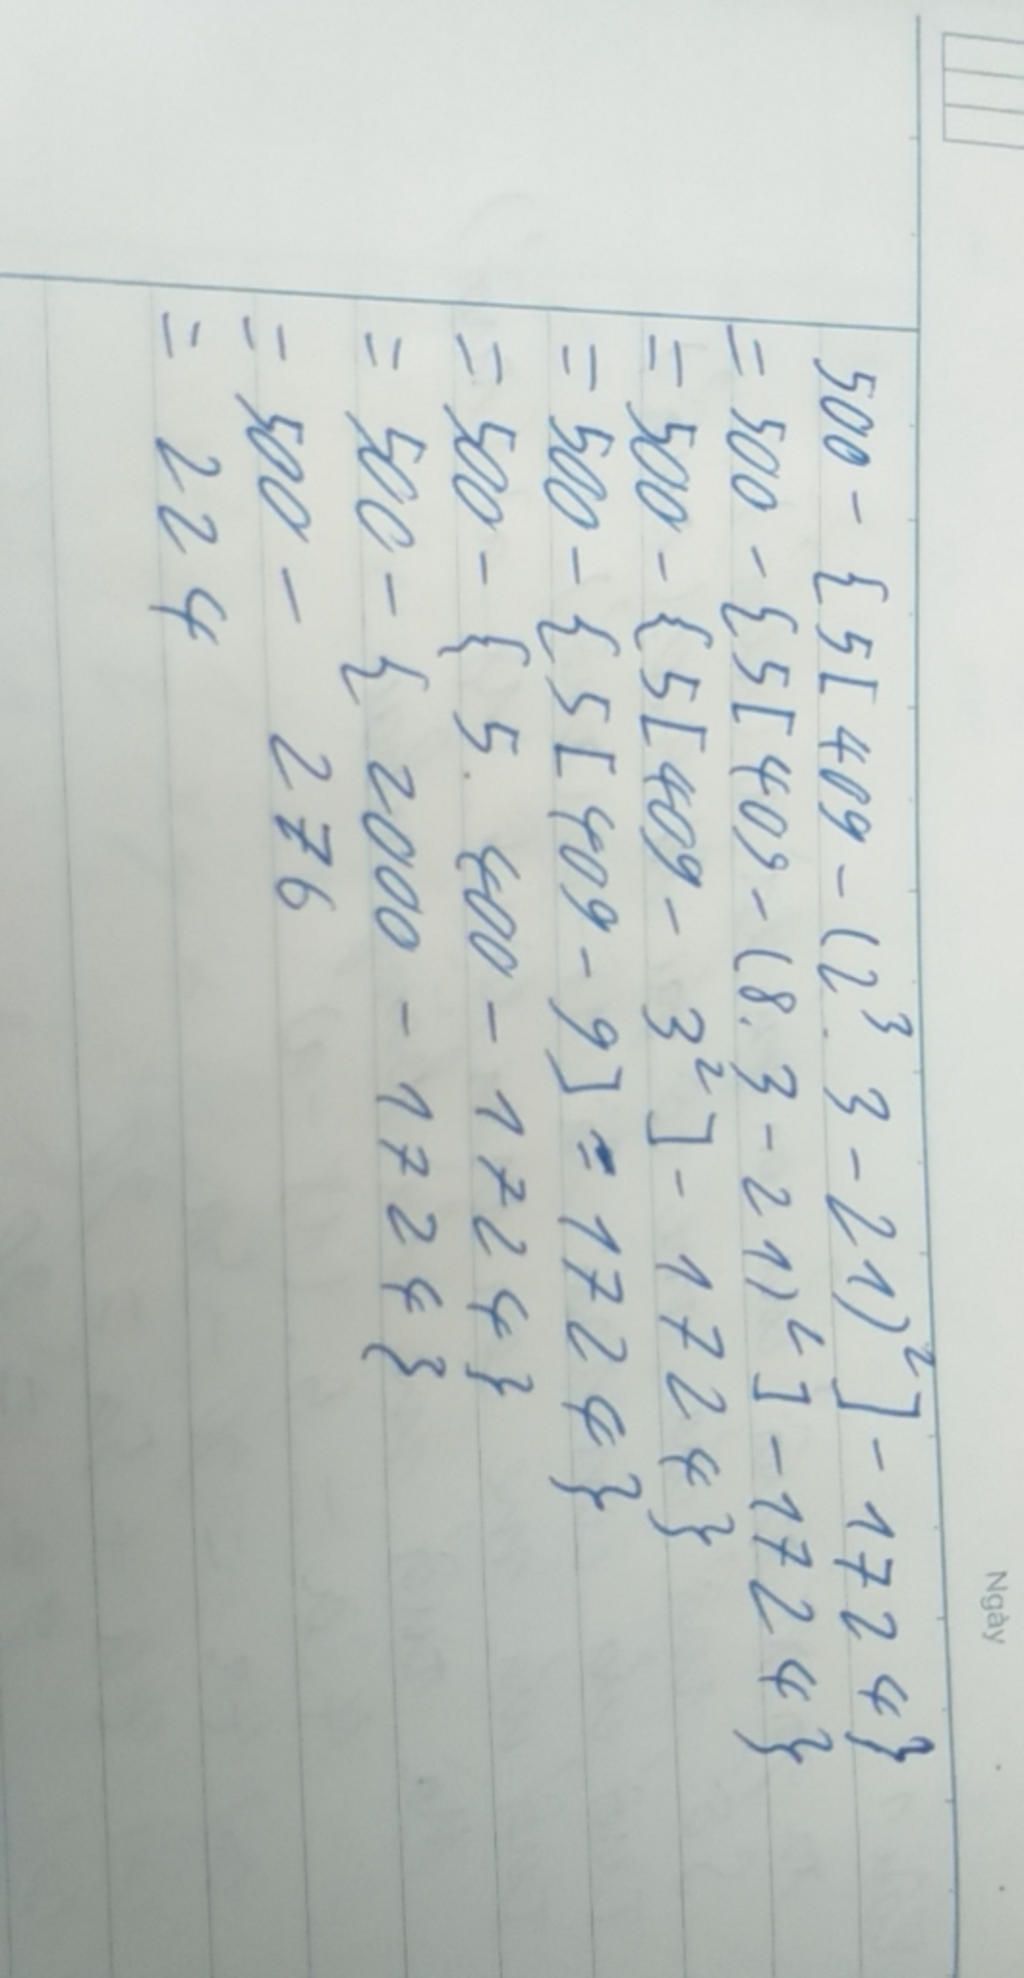 Ngày
500 - {5[409 - (2³. 3 - 21)²] - 1724}
= 500 - {5[409 - (8. 3 - 21)²] - 1724}
= 500 - {5[409 - 3²] - 1724}
= 500 - {5[409 - 9] = 1724}
= 500 - {5. 400 - 1724}
= 500 - {2000 - 1724}
= 500 - 276
= 224